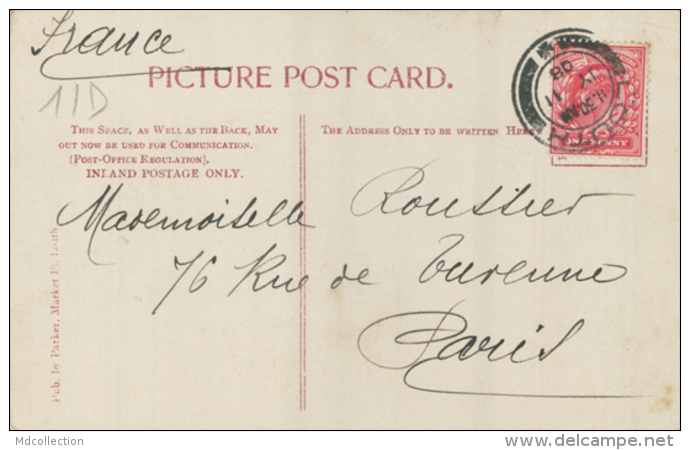 France
PICTURE POST CARD.
11D
THIS SPACE, AS WELL AS THE BACK, MAY
OUT NOW BE USED FOR COMMUNICATION.
(POST-OFFICE REGULATION).
INLAND POSTAGE ONLY.
THE ADDRESS ONLY TO BE WRITTEN HERE
LOUTH
11.30AM
11
JY
08
ONE PENNY
Mademoiselle Roustier
76 Rue de Turenne
Paris
Pub. by Parker, Market Pl. Louth
Mdcollection
www.delcampe.net